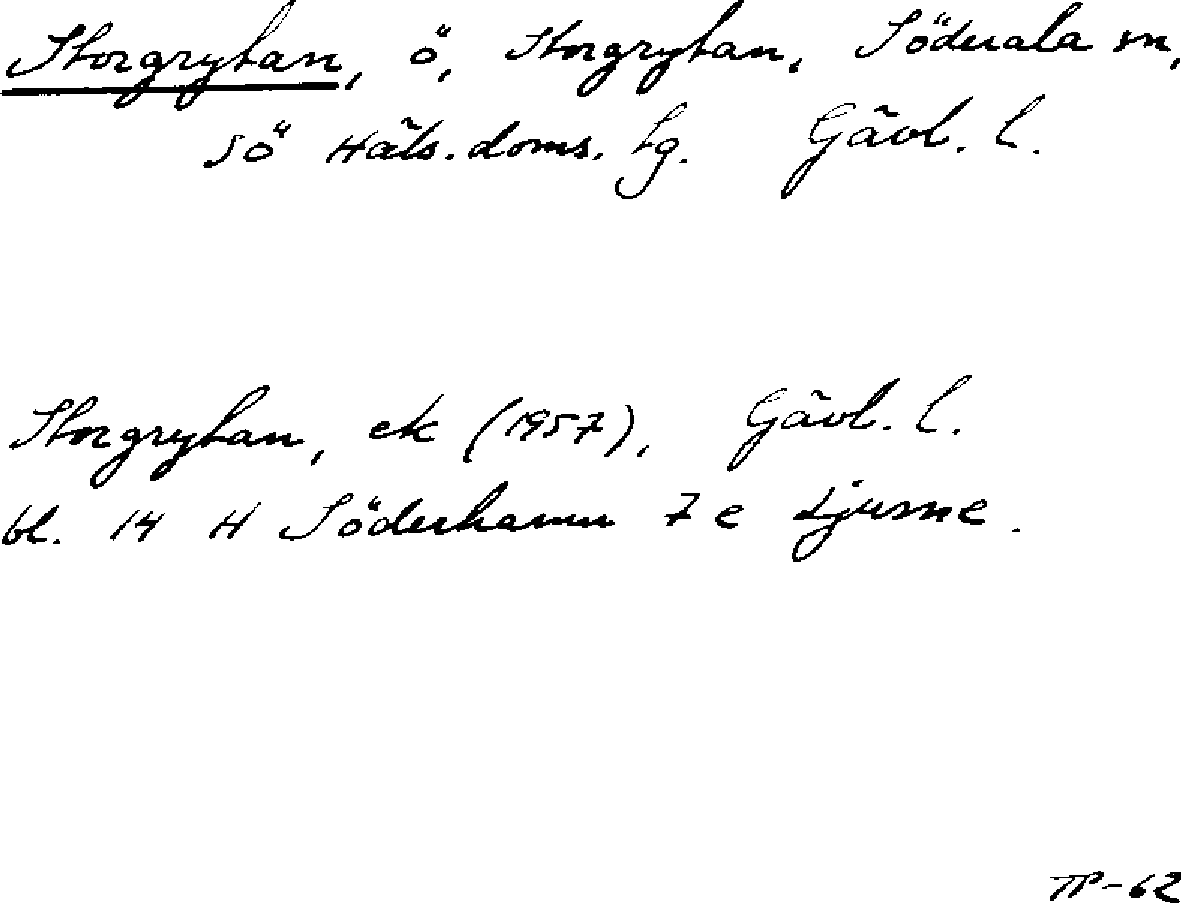 Storgrytan, ö, Storgrytan, Söderala sn,
sö Häls. doms. lg. Gävl. l.
Storgrytan, ek (1957), Gävl. l.
bl. 14 H Söderhamn 7 e Ljusne.
TP-62